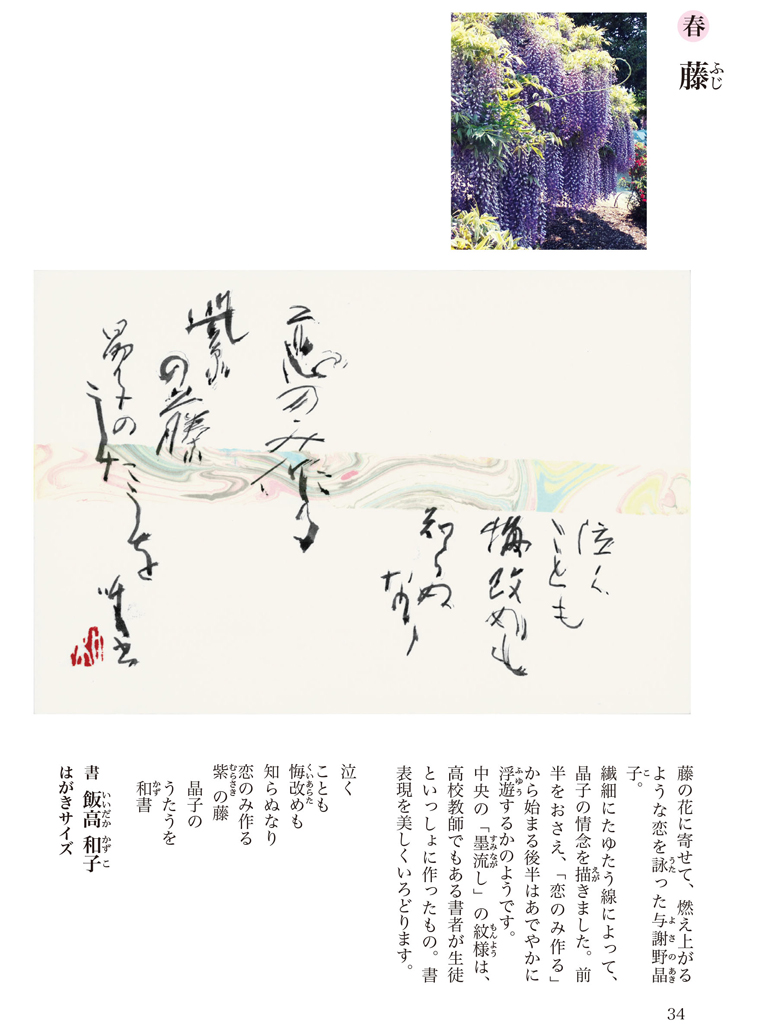 春
藤
ふじ
泣く
ことも
悔改めも
知らぬ
なり
恋のみ作る
紫
の藤
晶子の
うたうを
藤の花に寄せて、燃え上がる
ような恋を詠った与謝野晶
子。
繊細にたゆたう線によって、
晶子の情念を描きました。前
半をおさえ、「恋のみ作る」
から始まる後半はあでやかに
浮遊するかのようです。
中央の「墨流し」の紋様は、
高校教師でもある書者が生徒
といっしょに作ったもの。書
表現を美しくいろどります。
泣く
ことも
悔改めも
知らぬなり
恋のみ作る
紫の藤
晶子の
うたうを
和書
書 飯高 和子
はがきサイズ
34